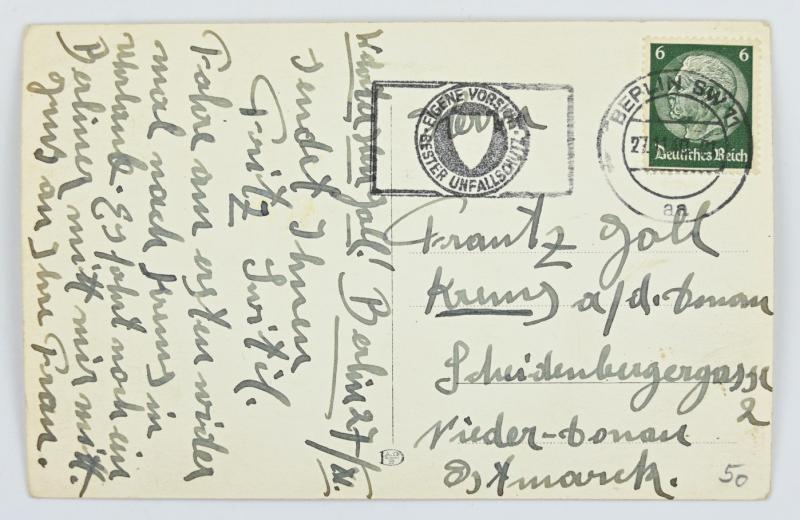 Werter Herr Goll! Berlin 27/XI.
sendet Ihnen
Fritz
Fahre am ersten wieder
mal nach Krems in
Urlaub. Es fahrt noch ein
Berliner mitt mir mitt.
Gruss an Ihre Frau.
EIGENE VORSICHT
BESTER UNFALLSCHUTZ
BERLIN SW 11
27.11.
aa
6 6
Deutsches Reich
Herrn
Frantz Goll
Krems a/d. Donau
Scheidenbergergasse
2
Nieder-Donau
Ostmarck.
50